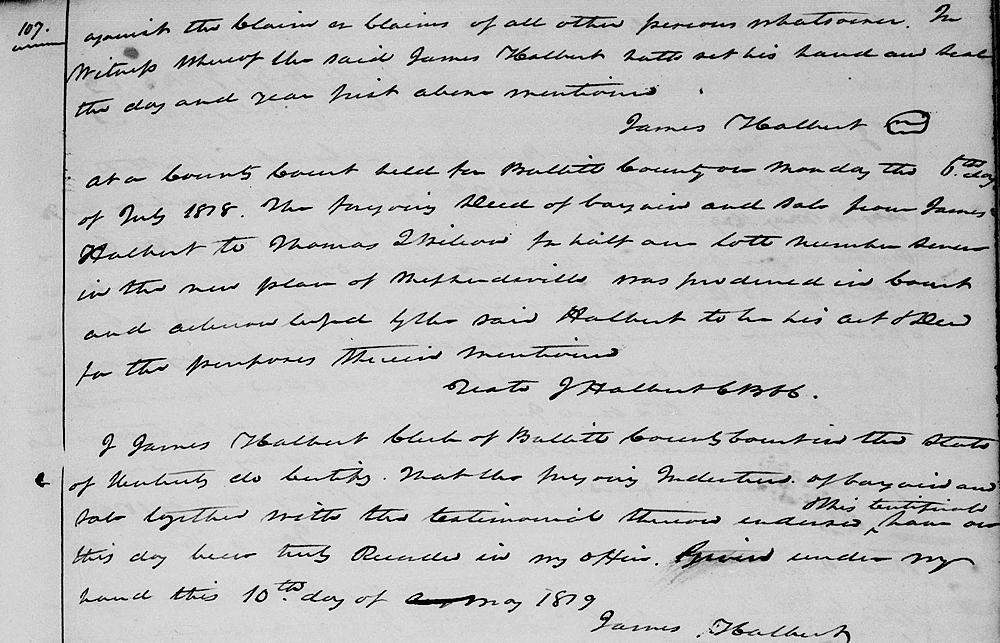 107.
against the Claim or Claims of all other persons whatsoever. In
Witness Whereof the said James Halbert hath set his hand and seal
the day and year first above mentioned
James Halbert
At a County Court held for Bullitt County on Monday the 6th day
of July 1818. The foregoing Deed of bargain and sale from James
Halbert to Thomas for half an lott number seven
in the new plan of Shepherdsville was produced in Court
and acknowledged by the said Halbert to be his act & Deed
for the purposes therein mentioned
Teste J Halbert CBCC.
I James Halbert Clerk of Bullitt County Court in the State
of Kentucky do Certify. That the foregoing Indenture of bargain and
sale together with the testimonial thereon endorsed, this Certificate have on
this day been truly Recorded in my office. Given under my
hand this 10th day of May 1819
James Halbert